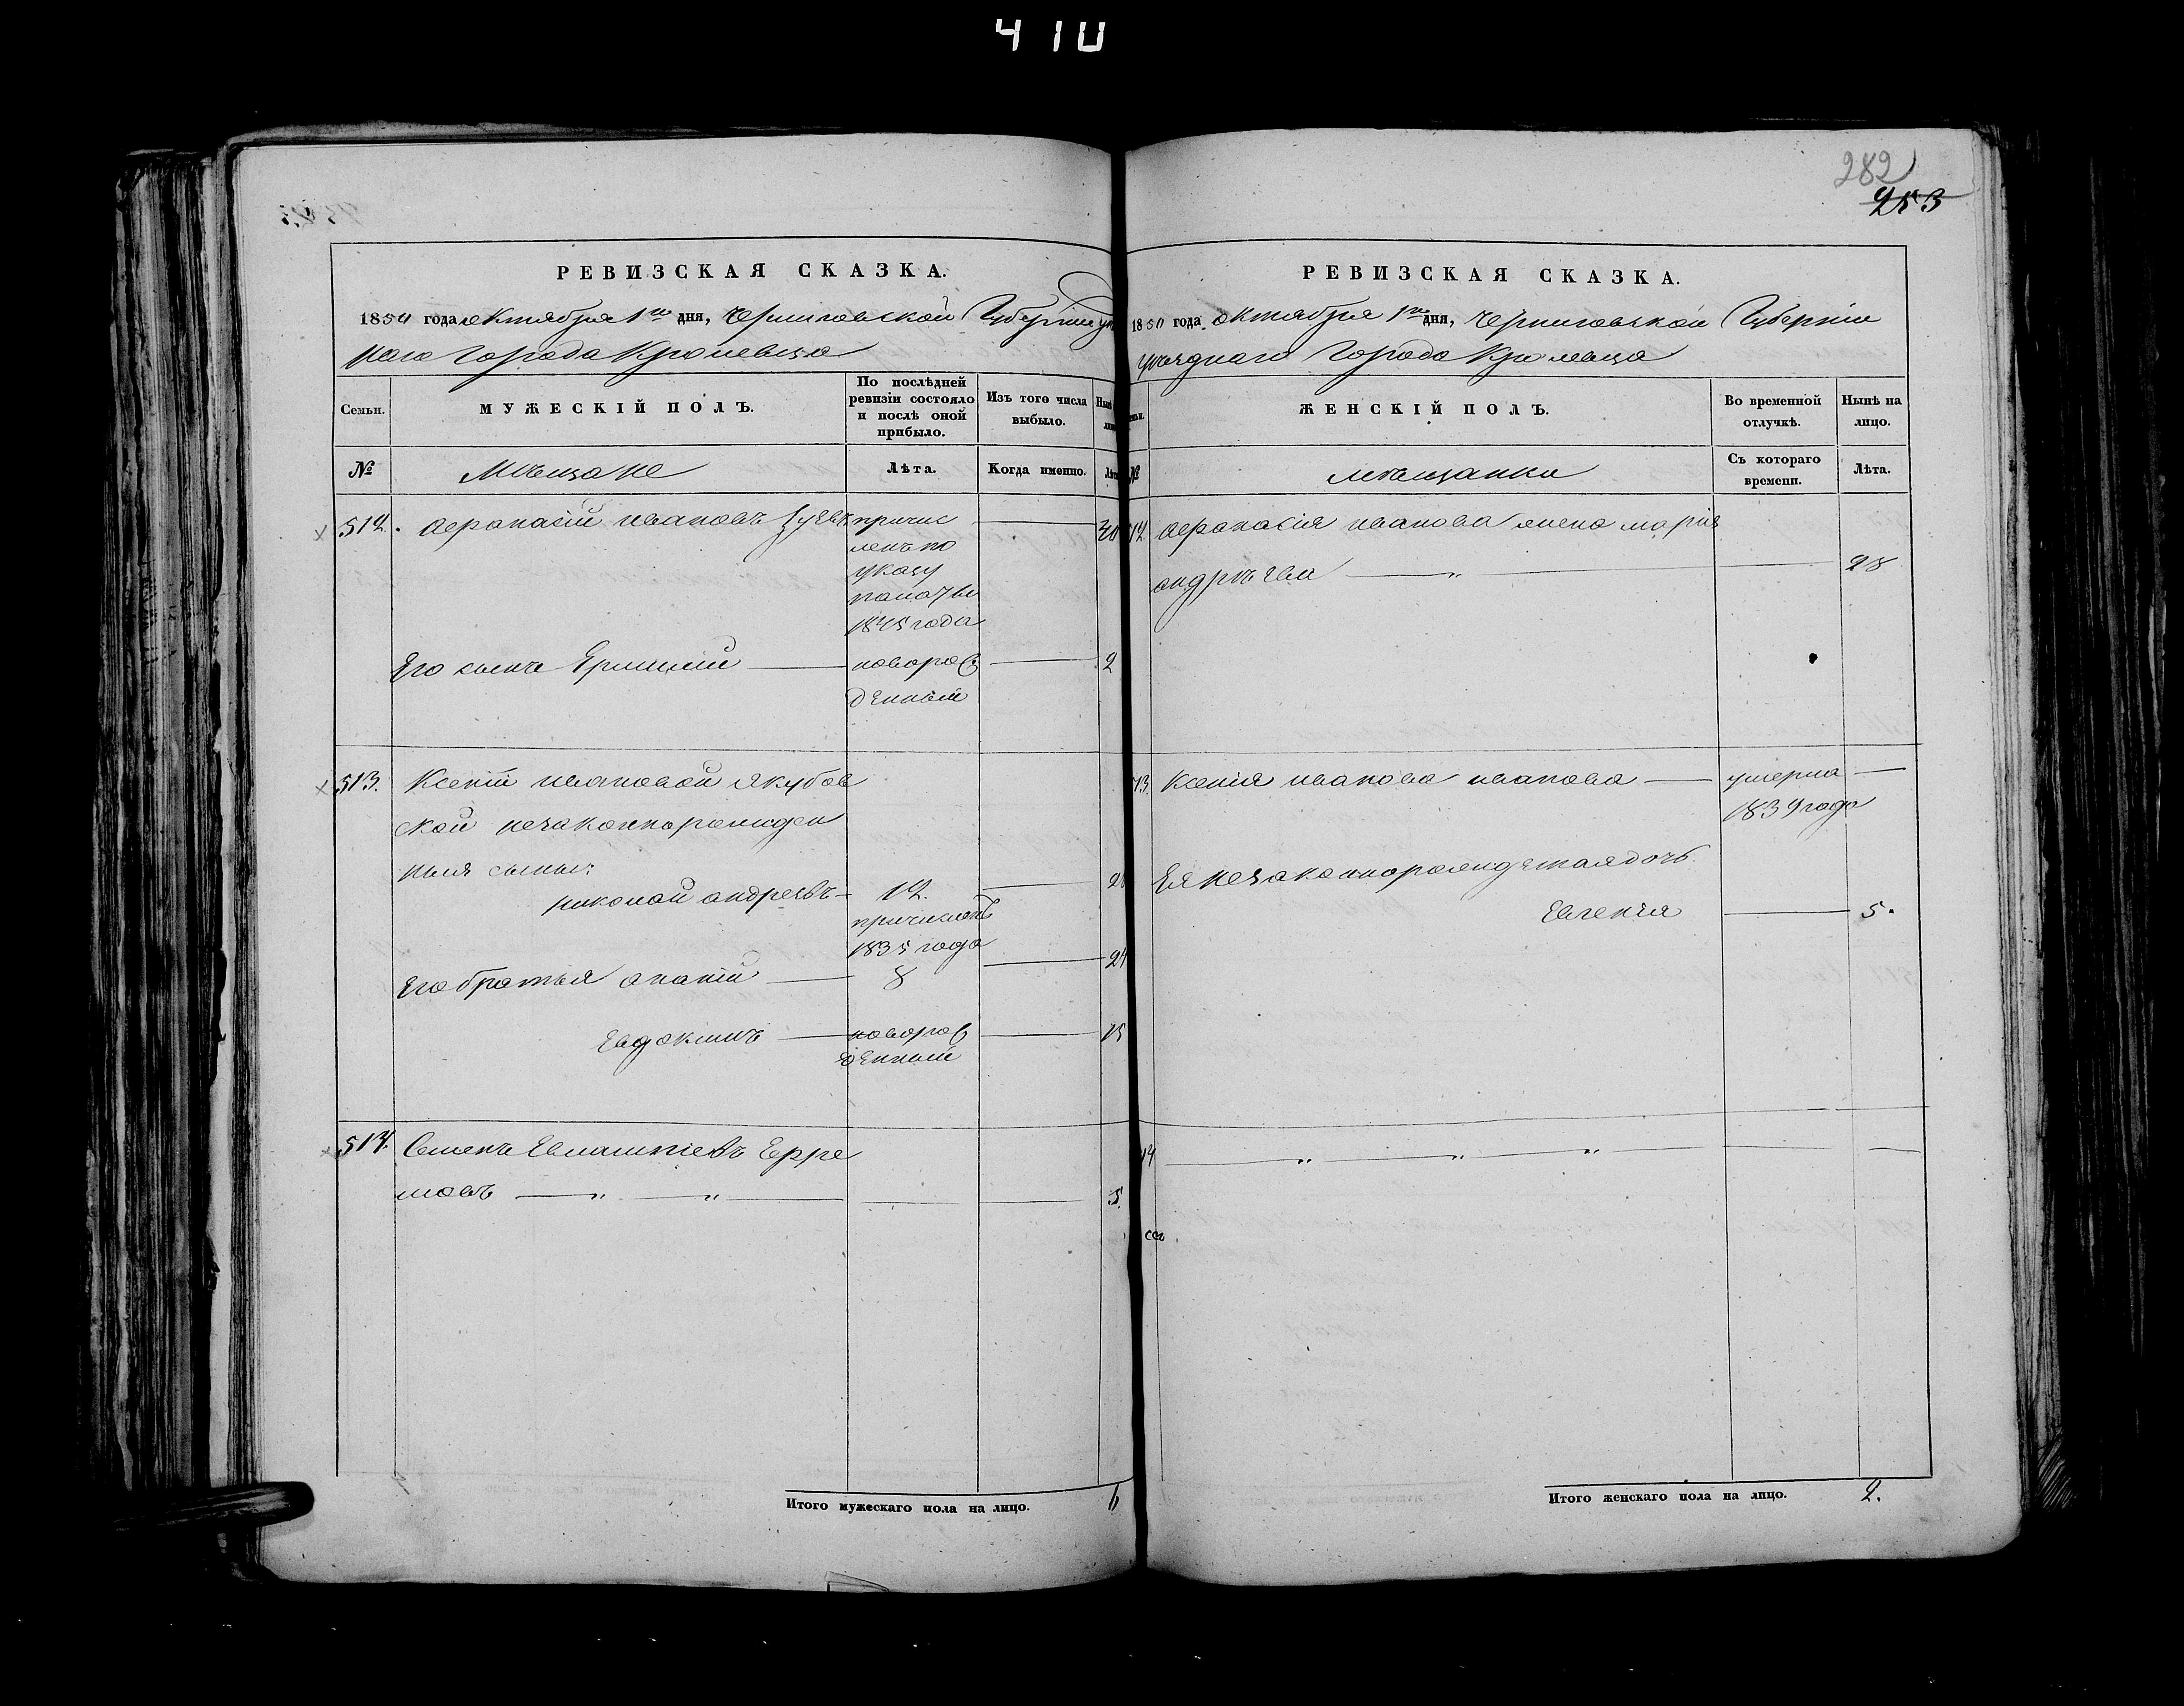 410
282
253
РЕВИЗСКАЯ СКАЗКА.
1850 года октября 1го дня, Черниговской Губерніи уѣзд
наго Города Кролевца
Семьи.
МУЖЕСКІЙ ПОЛЪ.
По послѣдней ревизіи состояло и послѣ оной прибыло.
Изъ того числа выбыло.
Нынѣ
№
Мѣщане
Лѣта.
Когда именно.
Лѣта
512. Афанасій Ивановъ Зуевъ
причис
ленъ по
указу
палаты
1845 года
40
Его сынъ
новорож
денный
2
513. Ксеніи Ивановой Якубов
ской незаконнорожден
ныя сыны:
Николай Андреевъ 12. 20
причислен
1835 года
Его братья Ананій 8 24
Евдокимъ новорож 15
денный
514. Семенъ Евлампіевъ Ефре
мовъ 5.
Итого мужескаго пола на лицо. 6
РЕВИЗСКАЯ СКАЗКА.
1850 года октября 1го дня, Черниговской Губерніи
уѣзднаго Города Кролевца
ЖЕНСКІЙ ПОЛЪ.
Во временной отлучкѣ.
Нынѣ на лицо.
№
мѣщанки
Съ котораго времени.
Лѣта.
12 Афанасія Иванова жена Марія
Андрѣева 28
13. Ксенія Иванова Иванова умерла
1839 года
Ея незаконнорожденная дочь
Евгенія 5.
14
Итого женскаго пола на лицо. 2.